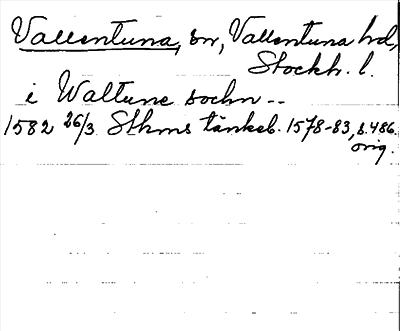 Vallentuna, sn, Vallentuna hd,
Stockh. l.
i Waltune sochn --
1582 26/3 Sthms tänkeb. 1578-83, s. 486.
orig.